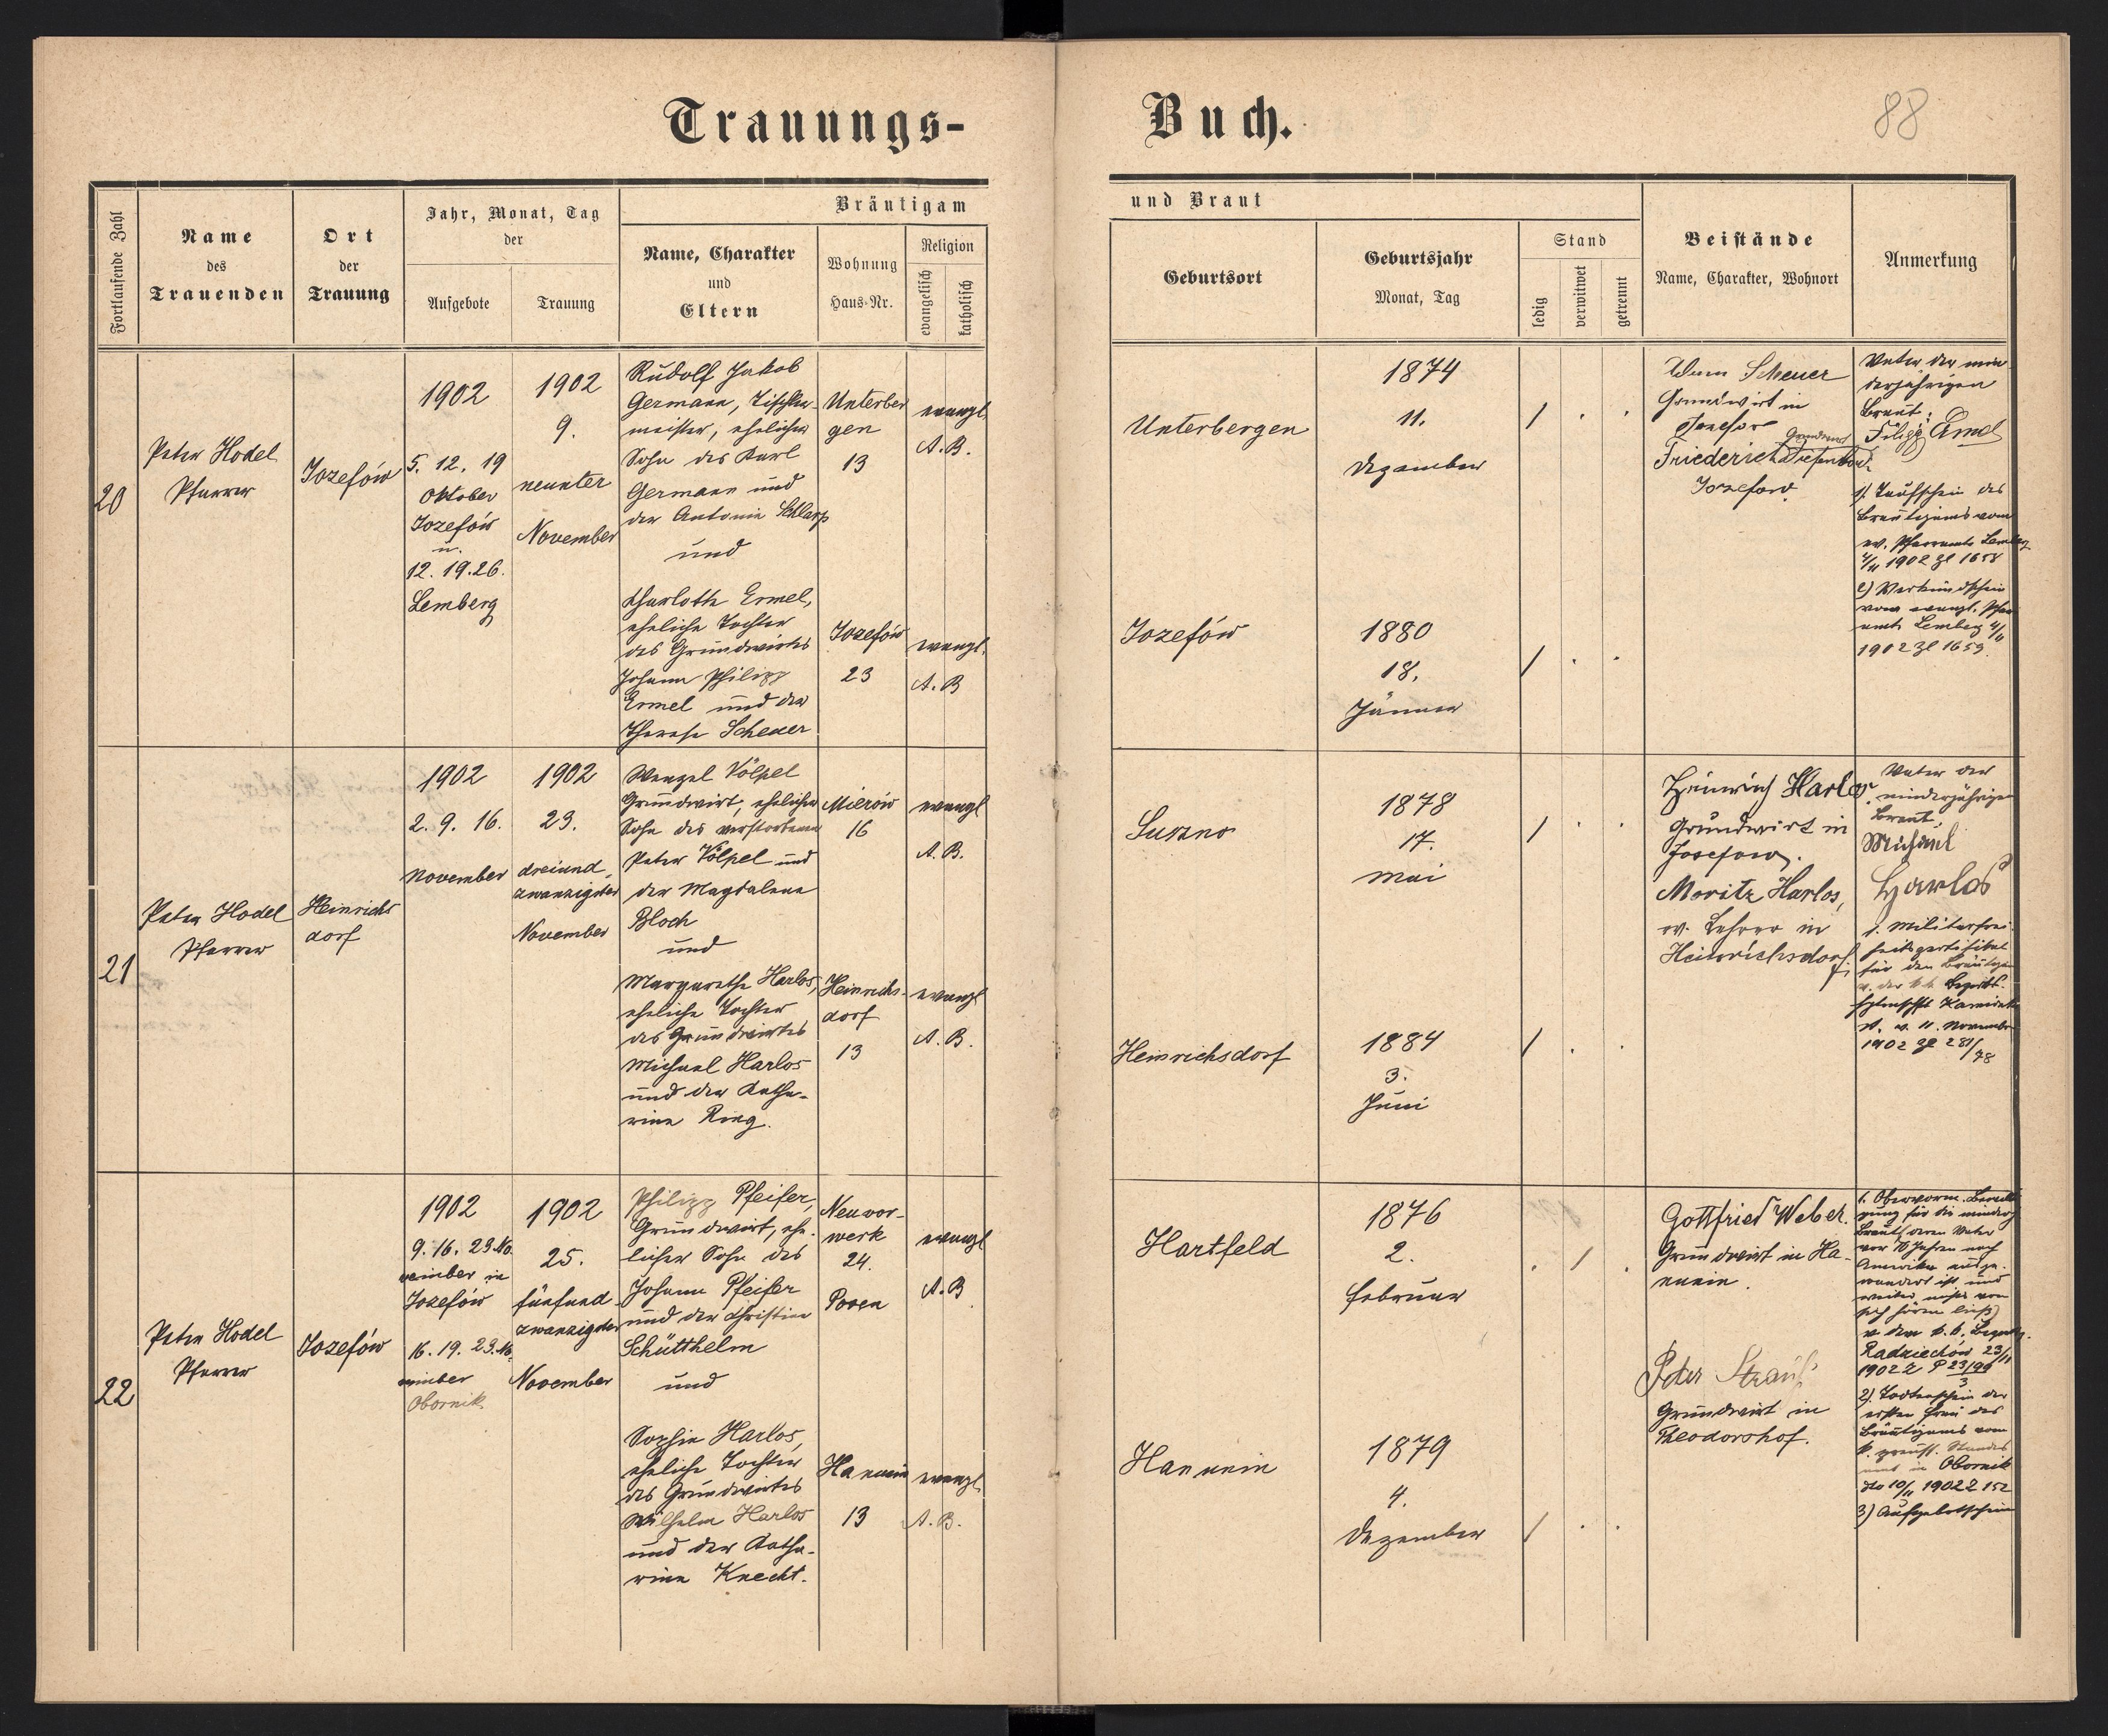 Trauungs-
Buch.
88
Fortlaufende Zahl
Name
des
Trauenden
Ort
der
Trauung
Jahr, Monat, Tag
der
Aufgebote
Trauung
Bräutigam
Name, Charakter
und
Eltern
Wohnung
Haus-Nr.
Religion
evangelisch
katholisch
und Braut
Geburtsort
Geburtsjahr
Monat, Tag
Stand
ledig
verwitwet
getrennt
Beistände
Name, Charakter, Wohnort
Anmerkung
20
Peter Hodel
Pfarrer
Jozefów
1902
5. 12. 19
Oktober
Jozefów
u.
12. 19. 26.
Lemberg
1902
9.
neunter
November
Rudolf Jakob
Germann, Tischler-
meister, ehelicher
Sohn des Karl
Germann und
der Antonie Schlarp
und
Charlotte Ermel,
eheliche Tochter
des Grundwirtes
Johann Philipp
Ermel und der
Therese Scheuer
Unterber
gen
13
Jozefów
23
evangl.
A. B.
evangl.
A. B
Unterbergen
Jozefów
1874
11.
Dezember
1880
18.
Jänner
Scheuer
Grundwirt in
Friederich
Jozefow.
Vater der min
derjährigen
Braut:
Filipp
1) Taufschein des
Bräutigams vom
ev. Pfarramte Lemberg
4/11 1902 Zl 1658
2) Verkündschein
vom evangl. Pfarr
amte Lemberg 4/11
1902 Zl 1659.
21
Peter Hodel
Pfarrer
Heinrichs
dorf
1902
2. 9. 16.
November
1902
23.
dreiund
zwanzigster
November
Wenzel Völpel
Grundwirt, ehelicher
Sohn des verstorbenen
Peter Völpel und
der Magdalena
Bloch
und
Margarethe Harlos,
eheliche Tochter
des Grundwirtes
Michael Harlos
und der Katha-
rina Ring.
Mierów
16
Heinrichs-
dorf
13
evangl
A. B.
evangl
A. B.
Suszno
Heinrichsdorf
1878
17.
Mai
1884
3.
Juni
Heinrich Harlos
Grundwirt in
Josefow.
Moritz Harlos,
ev. Lehrer in
Heinrichsdorf
Vater der
minderjährigen
Braut.
Michael
Harlos
für den Bräutigam
11. November
1902 Zl 281/98
22
Peter Hodel
Pfarrer
Jozefów
1902
9. 16. 23. No
vember in
Jozefów
16. 19. 23. No
vember
Obornik
1902
25.
fünfund
zwanzigster
November
Philipp Pfeifer,
Grundwirt, ehe-
licher Sohn des
Johann Pfeifer
und der Christine
Schütthelm
und
Sophie Harlos,
eheliche Tochter
des Grundwirtes
Wilhelm Harlos
und der Katha-
rina Knecht.
Neuvor-
werk
24.
Posen
Hanunin
13
evangl
A. B
evangl.
A. B.
Hartfeld
Hanunin
1876
2.
Februar
1879
4.
Dezember
Gottfried Weber.
Grundwirt in Ha-
nunin.
Peter Strauß
Grundwirt in
Theodorshof.
gung für die minderj
Braut (deren Vater
vor 10 Jahren nach
Amerika ausge-
wandert ist und
weiter nichts von
sich hören ließ)
Radziechów 23/11
1902 Z P 23/99
3
2) Todtenschein der
ersten Frau des
Bräutigams vom
k. preuss. Standes
amt in Obornik
dto 10/11 1902 Z 152
3) Aufgebotschein